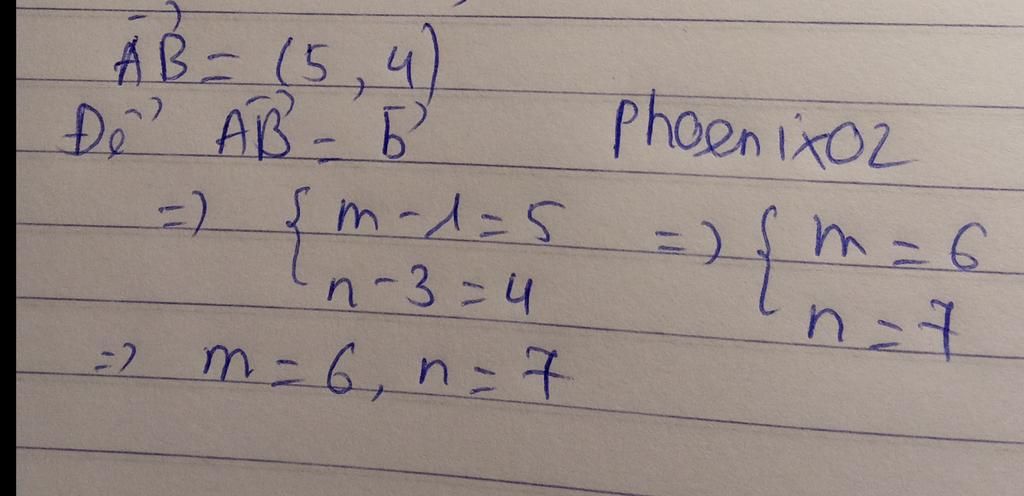 →AB = (5, 4)
Để →AB = →b Phoenix02
=> { m - 1 = 5 => { m = 6
n - 3 = 4 n = 7
=> m = 6, n = 7